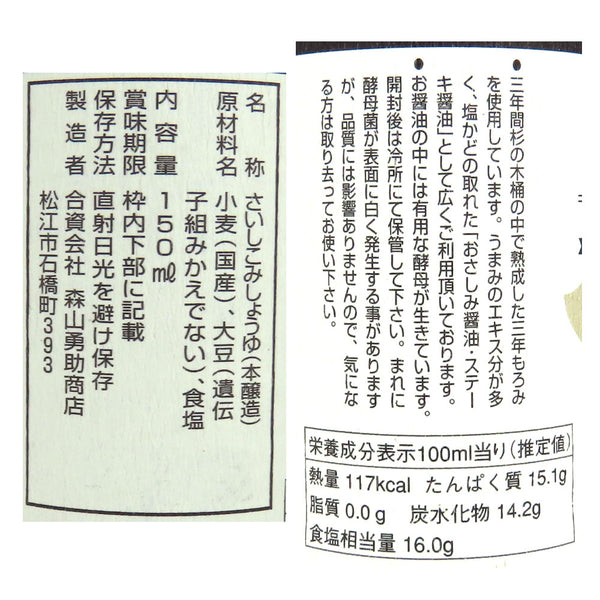 名称 さいしこみしょうゆ(本醸造)
原材料名 小麦(国産)、大豆(遺伝
子組みかえでない)、食塩
内容量 150㎖
賞味期限 枠内下部に記載
保存方法 直射日光を避け保存
製造者 合資会社 森山勇助商店
松江市石橋町393
●三年間杉の木桶の中で熟成した三年もろみ
を使用しています。うまみのエキス分が多
く、塩かどの取れた「おさしみ醤油・ステー
キ醤油」として広くご利用頂いております。
●お醤油の中には有用な酵母が生きています。
開封後は冷所にて保管して下さい。まれに
酵母菌が表面に白く発生する事があります
が、品質には影響ありませんので、気にな
る方は取り去ってお使い下さい。
栄養成分表示100ml当り(推定値)
熱量 117kcal たんぱく質 15.1g
脂質 0.0g 炭水化物 14.2g
食塩相当量 16.0g